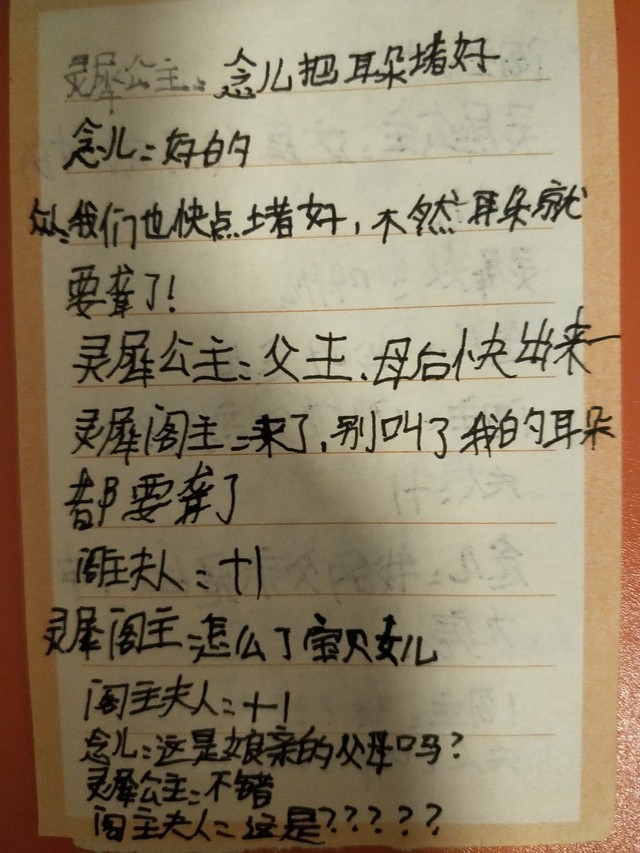 灵犀公主:念儿把耳朵堵好
念儿:好的
众:我们也快点堵好,不然耳朵就
要聋了!
灵犀公主:父王、母后快出来
灵犀阁主:来了,别叫了我的耳朵
都要聋了
阁主夫人:十1
灵犀阁主:怎么了宝贝女儿
阁主夫人:十1
念儿:这是娘亲的父母吗?
灵犀公主:不错
阁主夫人:这是?????